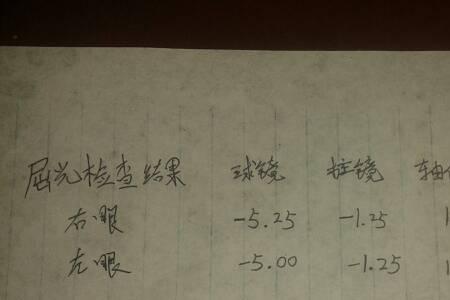 屈光检查结果 球镜 柱镜 轴
右眼 -5.25 -1.25
左眼 -5.00 -1.25